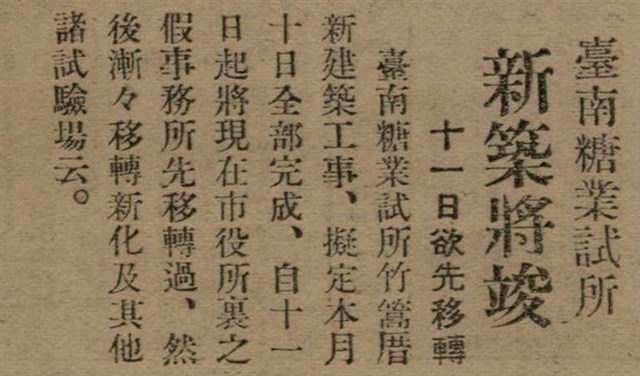 臺南糖業試所
新築將竣
十一日欲先移轉
臺南糖業試所竹篙厝
新建築工事、擬定本月
十日全部完成、自十一
日起將現在市役所裏之
假事務所先移轉過、然
後漸々移轉新化及其他
諸試驗場云。